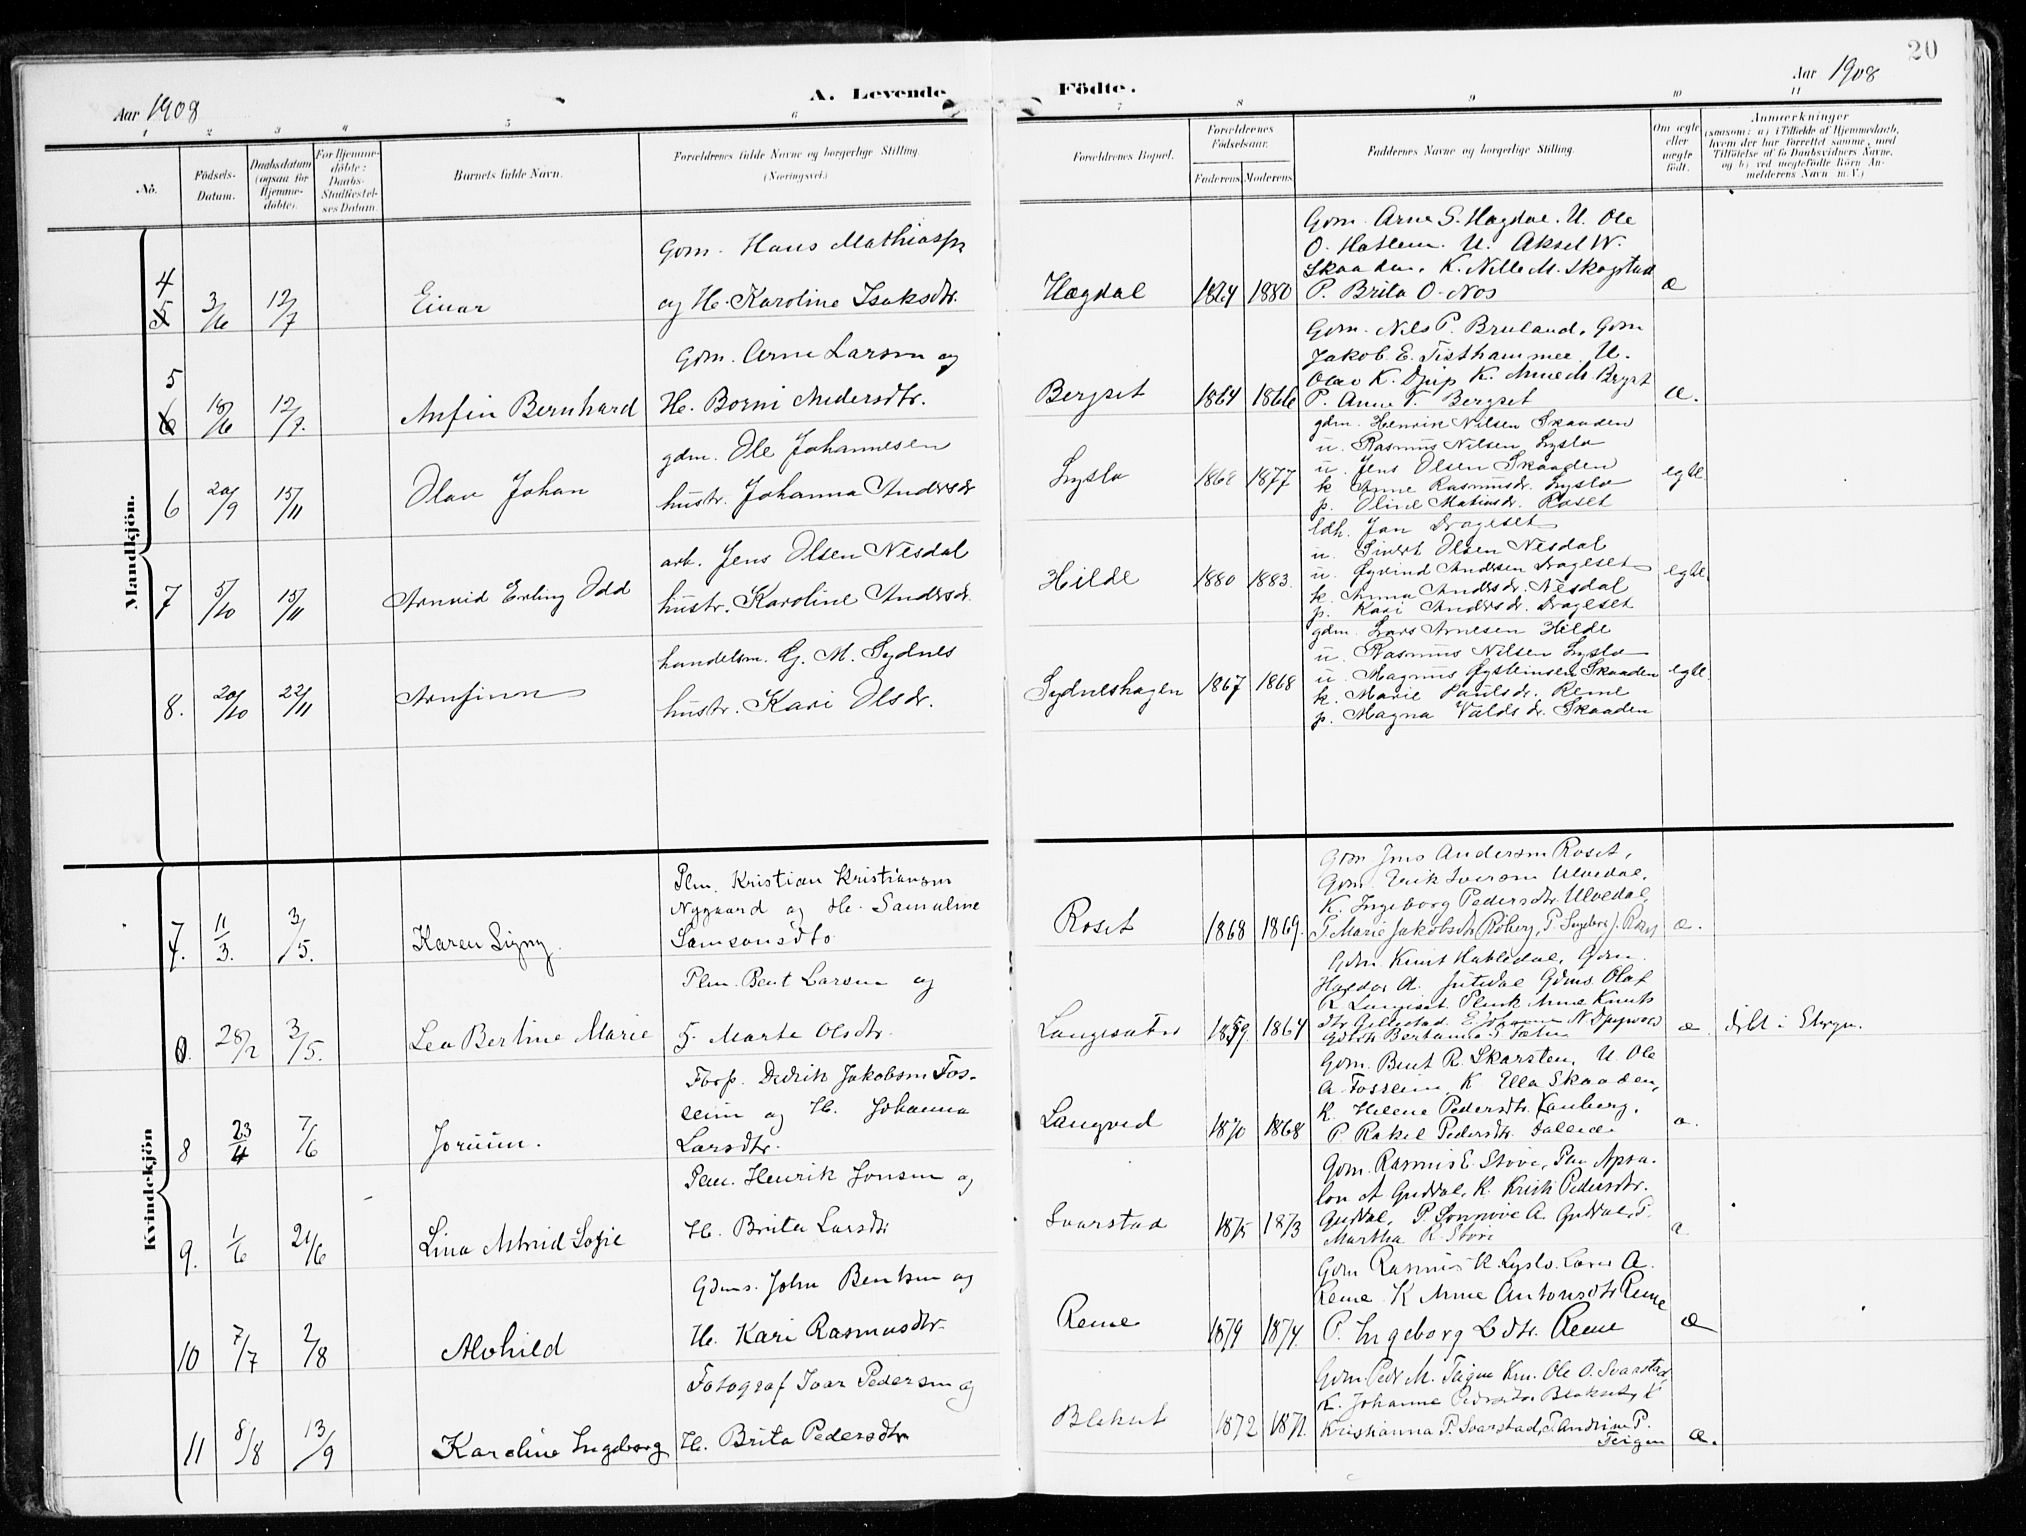 20
Aar 1908
A. Levende
Födte.
Aar 1908
1 2 3 4 5 6 7 8 9 10 11
No.
Födsels-
Datum.
Daabsdatum
(ogsaa for
Hjemme-
döbte).
For Hjemme-
döbte:
Daabs-
Stadfestel-
ses Datum.
Barnets fulde Navn.
Forældrenes fulde Navne og borgerlige Stilling.
(Næringsvei.)
Forældrenes Bopæl.
Forældrenes
Födselsaar.
Faderens. Moderens.
Faddernes Navne og borgerlige Stilling.
Om ægte
eller
uægte
födt.
Anmærkninger
(saasom: a) i Tilfælde af Hjemmedaab,
hvem der har forrettet samme, med
Tilföielse af to Daabsvidners Navne,
og b) ved uægtefödte Börn An-
melderens Navn m. V.)
Mandkjön.
4
5 3/6 12/7 Einar
Gdm. Hans Mathiass.
og H. Karoline Isaksdtr.
Hægdal 1864 1880
Gdm. Arne S. Hagdal. U. Ole
O. Hatlem. U. Aksel W.
Skaaden. K. Nille M. Skogstad
P. Brita O. Nos
æ
5
6 18/6 12/7. Anfin Bernhard
Gdm. Arne Larsen og
H. Borni Andersdtr.
Bergset 1864 1866
Gdm. Nils P. Bruland, Gdm
Jakob E. Tisthammer. U.
Olav K. Djup K. Anne M. Brgst
P. Anne V. Bergset
æ.
6 20/9 15/11 Olav Johan
gdm. Ole Johannesen
hustr. Johanna Andersdr
Lyslo 1868 1877
gdm. Henrik Nilsen Skaaden
u. Rasmus Nilsen Lyslo
u. Jens Olsen Skaaden
k. Anne Rasmusdr. Lyslo
p. Oline Matiasdr. Roset
egte
7 5/10 15/11 Arnvid Erling Odd
arb. Jens Olsen Nesdal
hustr. Karoline Andersdr.
Hilde 1880 1883.
ldh. Jan Drageset
u. Sivert Olsen Nesdal
u. Øyvind Andersen Drageset
k. Anna Andersdr. Nesdal
p. Kari Andersdr. Drageset
egte
8. 20/10 22/11 Arnfinn
handelsm. G. M. Sydnes
hustr. Kari Olsdr.
Sydneshagen 1867 1868
gdm. Lars Arnesen Hilde
u. Rasmus Nilsen Lyslo
u. Magnus Øysteinsen Skaaden
k. Marie Paulsdr. Reme
p. Magna Valdsdr. Skaaden
egte.
Kvindekjön
7. 11/3. 3/5. Karen Signy.
Plm. Kristian Kristiansen
Nygaard og H. Samuline
Samsonsdtr
Roset 1868 1869.
Gdm Jens Andersen Roset,
Gdm. Erik Iversen Ulvedal,
K. Ingeborg Pedersdtr Ulvedal,
P. Marie Jakobsdtr Röberg, P. Ingebor J. Roset
æ.
28/2 3/5. Lea Bertine Marie
Plm. Bent Larsen og
H. Marte Olsdtr.
Langesæter 1859. 1864
Gdm. Knut Hatledal, Gdm.
Hagdor A. Jutedal Gdms. Olaf
R. Langeset Anne Knuts
dtr Gillestad.
æ. döbt i Stryn.
8 23/4 7/6 Jorunn.
Forp. Didrik Jakobsen Fos-
seim og H. Johanna
Larsdtr.
Langved 1870 1868
Gdm. Bent R. Skarsten, U. Ole
A. Fosseim, K Ella Skaaden,
K. Helene Pedersdtr. Kauberg,
P Rakel Pedersdtr.
æ.
9. 1/6 21/6 Lina Astrid Sofie
Plm. Henrik Jonsen og
H. Brita Larsdtr
Svarstad 1875 1873
Gdm. Rasmus E. Stove, Plm Apsa-
lon A Guddal, K. Kristi Pedersdtr.
Guddal, P. Sonnove A. Guddal, P.
Martha R Stove
æ.
10 7/7 2/8 Alvhild
Gdms. John Bentsen og
H. Kari Rasmusdtr.
Reme 1879 1874.
Gdm Rasmus K. Lyslo. Lars A.
Reme. K Anne Antonsdtr Reme
P. Ingeborg L dtr. Reme
æ
11 8/8 13/9 Karoline Ingeborg
Fotograf Ivar Pedersen og
H. Brita Pedersdtr
Blakset 1872 1872.
Gdm Peder M. Teigen Km. Ole O. Svarstad
K. Johanne Pedersdtr Blakset, K
Kristianna P. Svarstad, P. Andrine P.
Teigen
æ.